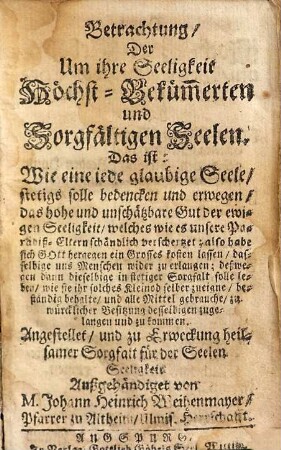 Betrachtung/
Der
Um ihre Seeligkeit
Höchst-Bekümmerten
und
Sorgfältigen Seelen.
Das ist:
Wie eine jede glaubige Seele/
stetigs solle bedencken und erwegen/
das hohe und unschätzbare Gut der ewi-
gen Seeligkeit/ welches wie es unsere Pa-
radiß-Eltern schändlich verschertzet/ also habe
sich GOtt hergegen ein Grosses kosten lassen/ das-
selbige uns Menschen wider zu erlangen; deßwe-
gen dann dieselbige in stetiger Sorgfalt solle le-
ben/ wie sie ihr solches Kleinod selber zueigne/ be-
ständig behalte/ und alle Mittel gebrauche/ zu
würcklicher Besitzung desselbigen zuge-
langen und zu kommen.
Angestellet/ und zu Erweckung heil-
samer Sorgfalt für der Seelen
Seeligkeit
Außgehändiget von
M. Johann Heinrich Weihenmayer/
Pfarrer zu Altheim/ Ulmis. Herrschafft.
AUGSPURG,
Verlag Gottlieb Göbels Seel.